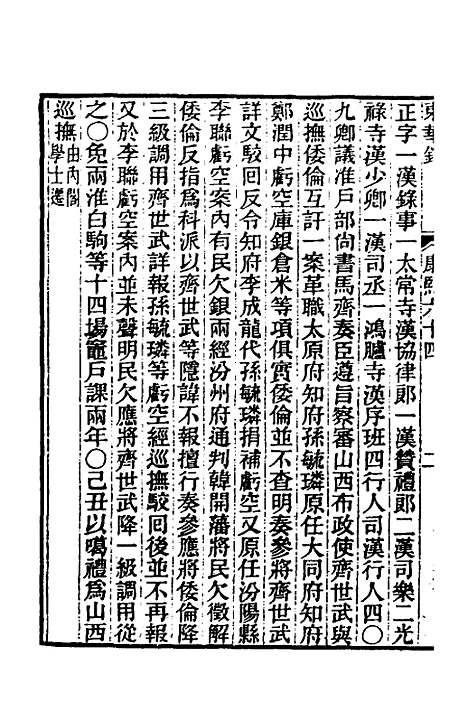 東華錄 康熙六十四 二
正字一漢錄事一太常寺漢協律郎一漢贊禮郎二漢司樂二光
祿寺漢少卿一漢司丞一鴻臚寺漢序班四行人司漢行人四〇
九卿議准戶部尚書馬齊奏臣遵旨察審山西布政使齊世武與
巡撫倭倫互訐一案革職太原府知府孫毓璘原任大同府知府
鄭潤中虧空庫銀倉米等項俱實倭倫並不查明奏參將齊世武
詳文駁回反令知府李成龍代孫毓璘捐補虧空又原任汾陽縣
李聯虧空案內有民欠銀兩經汾州府通判韓開藩將民欠徵解
倭倫反指爲科派以齊世武等隱諱不報擅行奏參應將倭倫降
三級調用齊世武詳報孫毓璘等虧空經巡撫駁回後並不再報
又於李聯虧空案內並未聲明民欠應將齊世武降一級調用從
之〇免兩淮白駒等十四場竈戶課兩年〇己丑以噶禮爲山西
巡撫由內閣學士遷